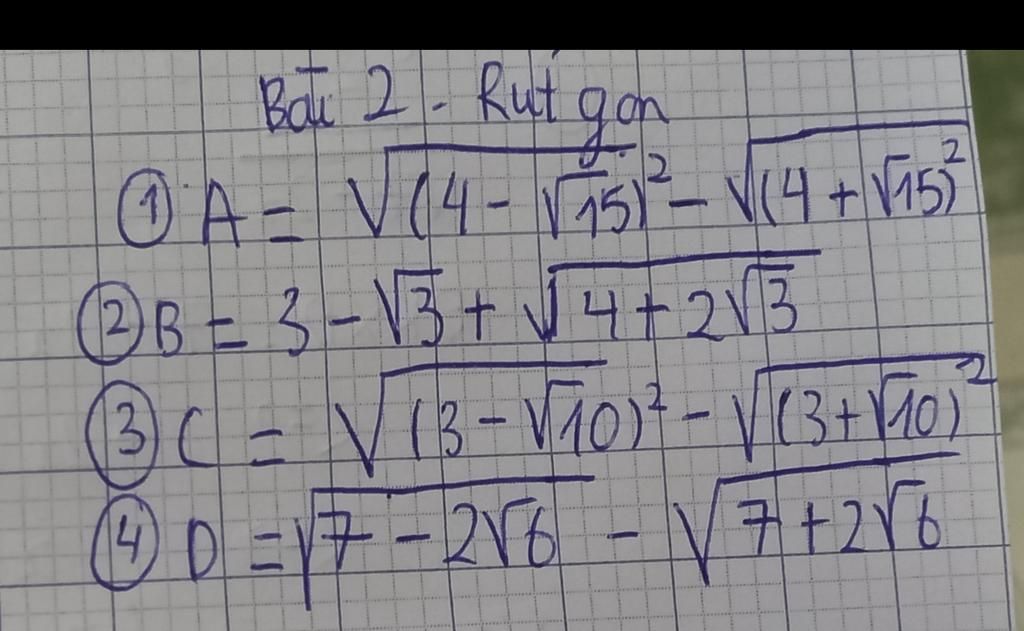 Bài 2 - Rút gọn
① A = √(4 - √15)² - √(4 + √15)²
② B = 3 - √3 + √4 + 2√3
③ C = √(3 - √10)² - √(3 + √10)²
④ D = √7 - 2√6 - √7 + 2√6